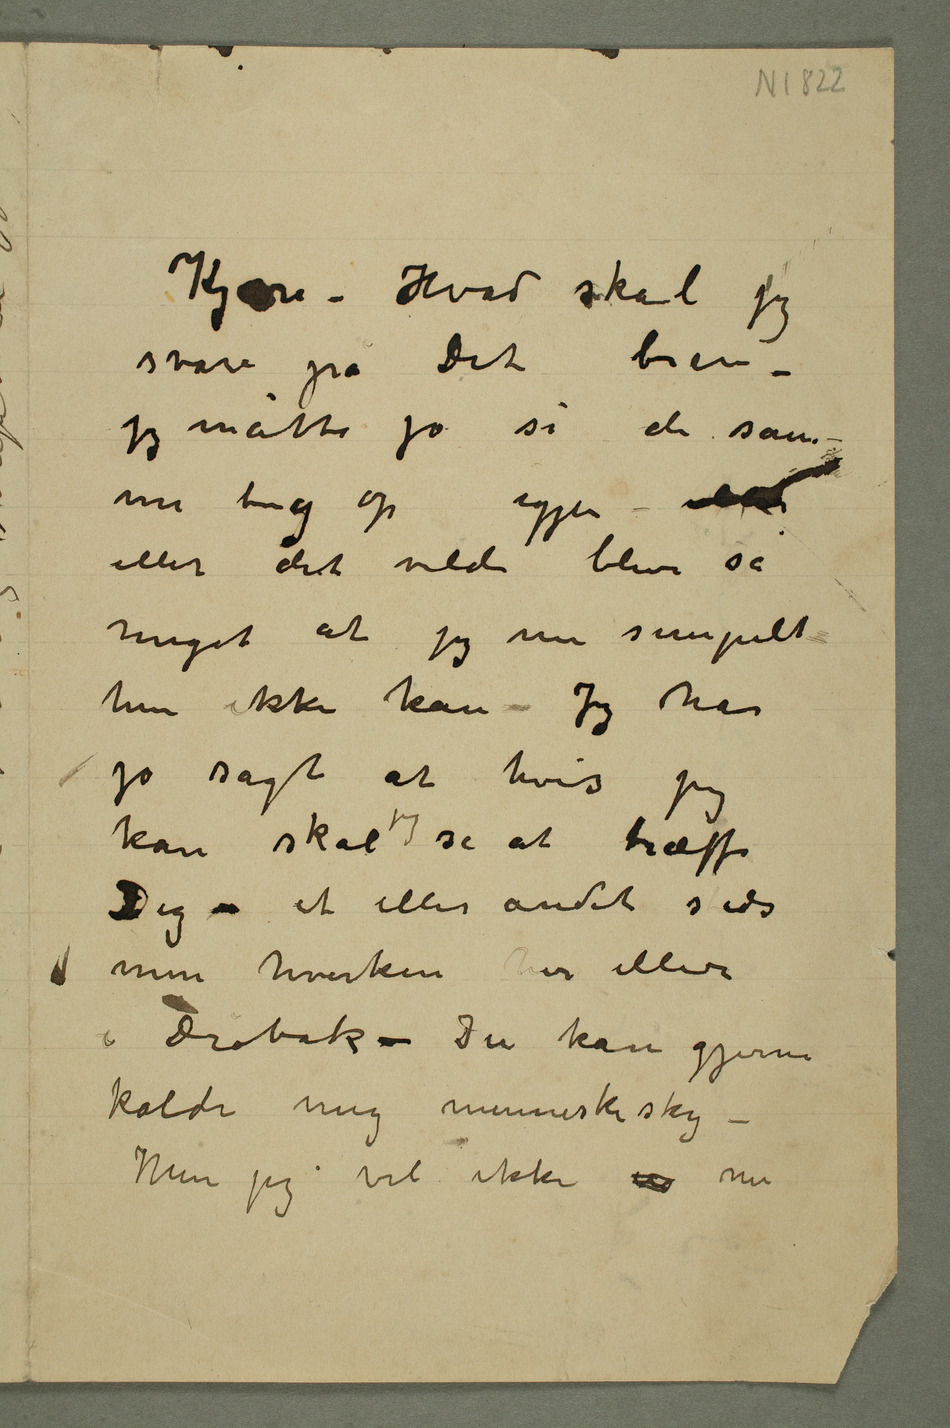 N 1822
Kjære – Hvad skal jeg
svare på Dit brev –
jeg måtte jo si de sam-
me ting op igjen – eller
eller det vilde blive så
meget at jeg nu simpelt
hen ikke kan – Jeg har
jo sagt at hvis jeg
kan skal jeg se at træffe
Dig – et eller andet steds
men hverken her eller
i Drøbak – Du kan gjerne
kalde mig menneskesky –
Men jeg vil ikke nu